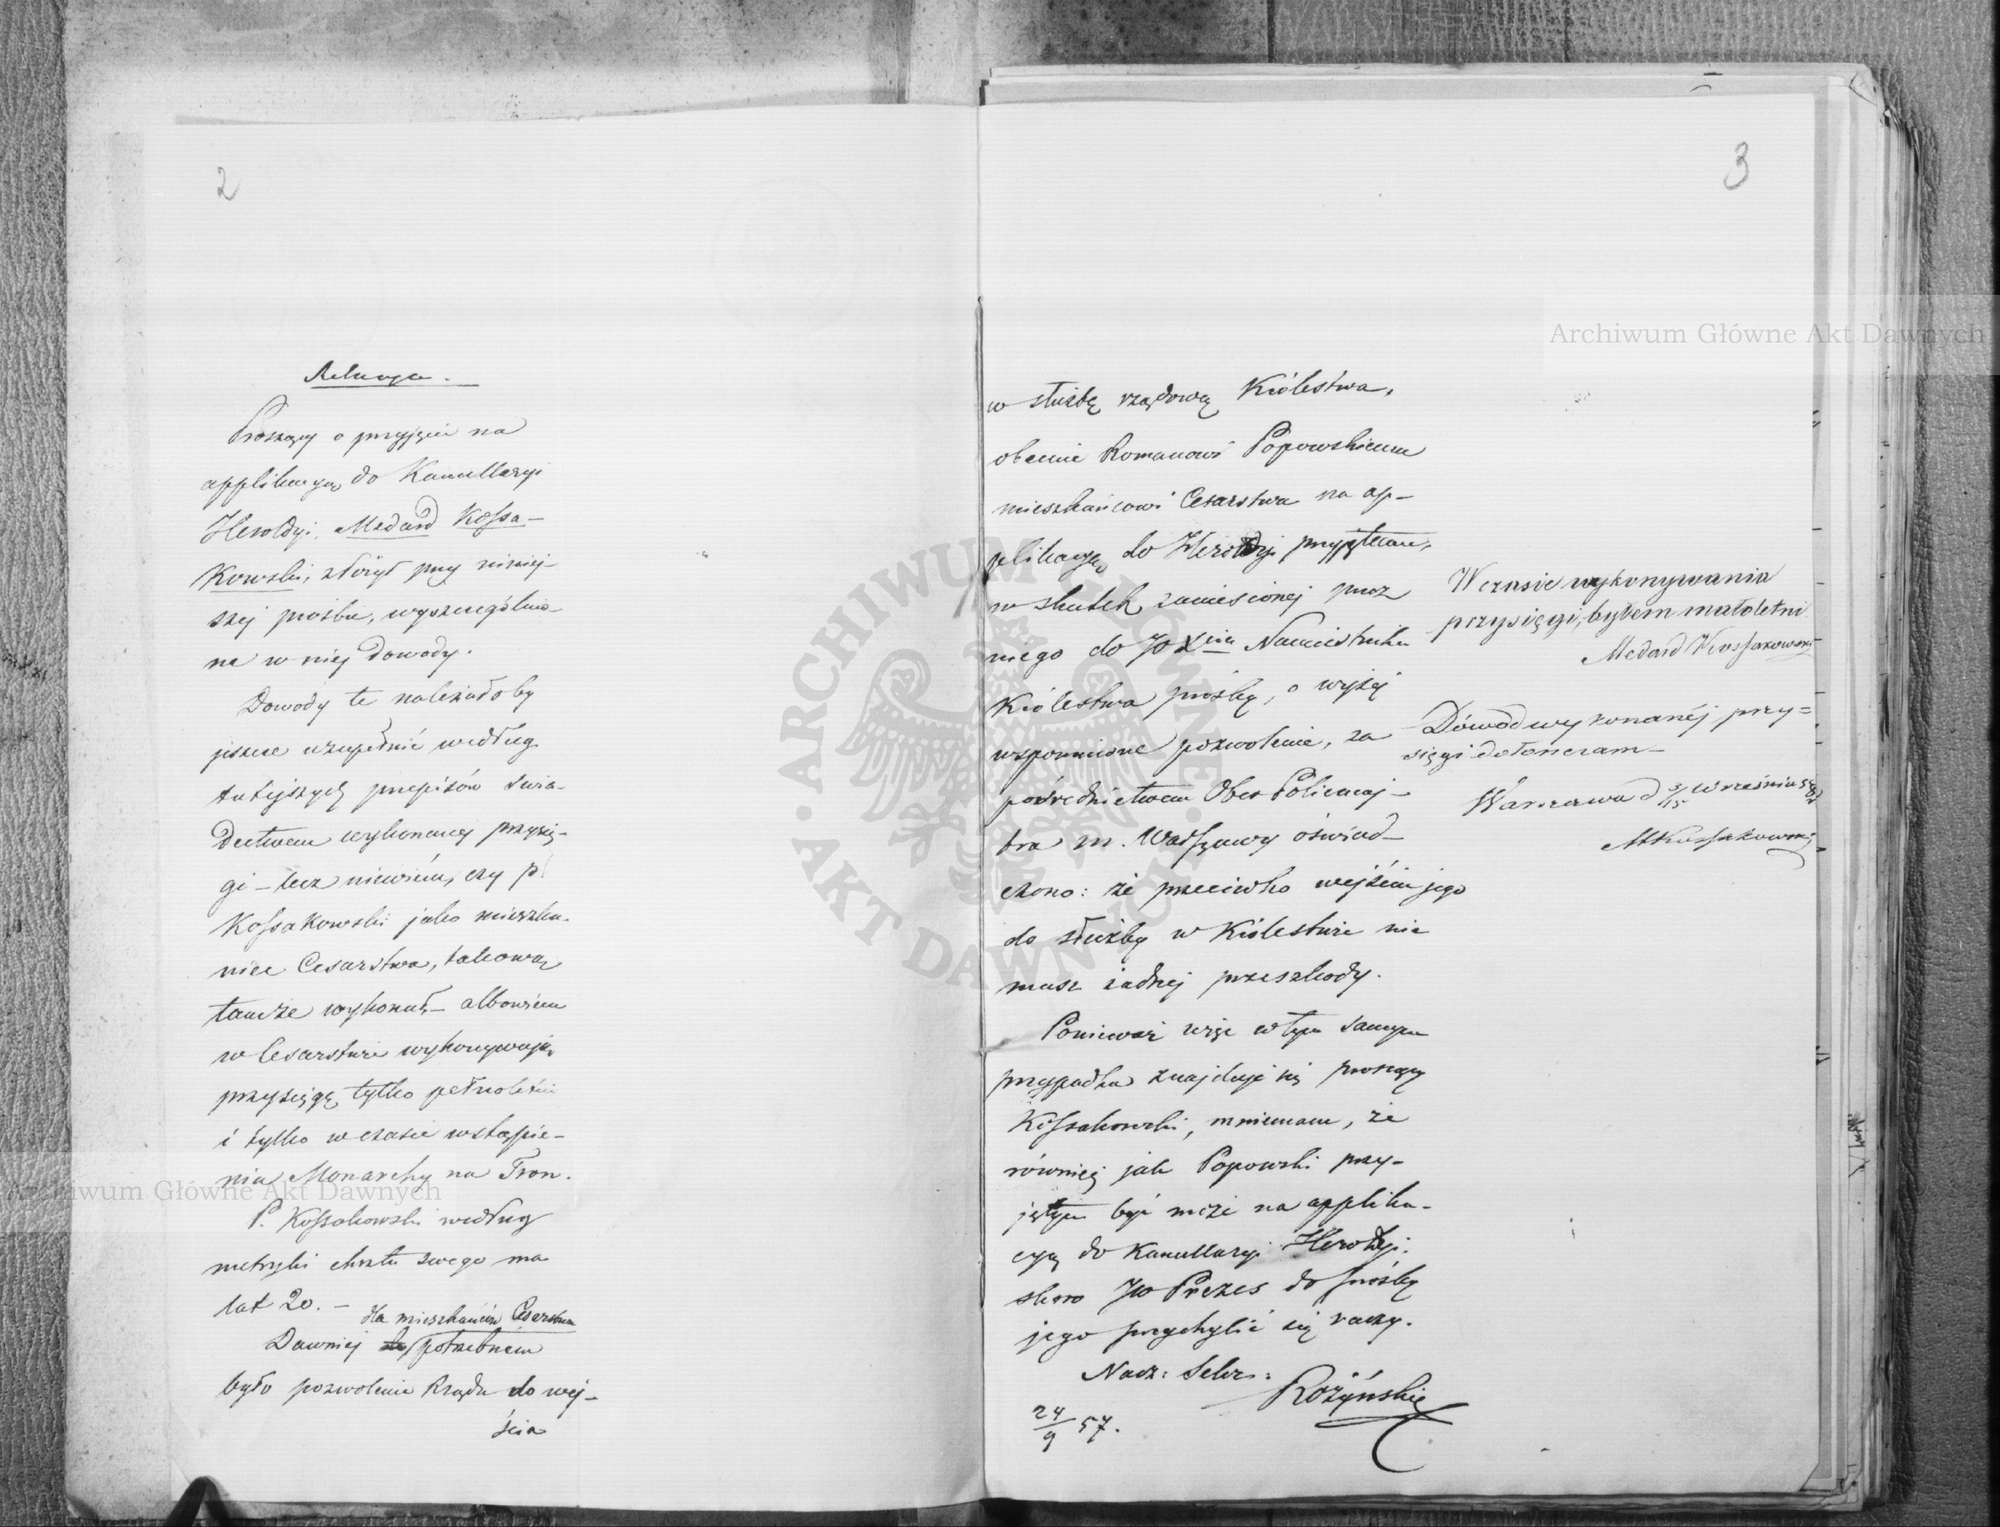 2
Relacya.
Proszący o przyjęcie na
applikacyą do Kancellaryi
Heroldyi, Medard Kossa-
Kowski, złożył przy niniej-
szej prośbie, wyszczególnio-
ne w niej dowody.
Dowody te należałoby
jeszcze uzupełnić według
tutejszych przepisów świa-
dectwem wykonanej przysię-
gi – lecz niewiem, czy p.
Kossakowski jako mieszka-
niec Cesarstwa, takową
tamże wykonał, – albowiem
w Cesarstwie wykonywają
przysięgę tylko pełnoletni
i tylko w czasie wstąpie-
nia Monarchy na Tron.
P. Kossakowski według
metryki chrztu swego ma
lat 20. –
dla mieszkańców Cesarstwa
Dawniej potrzebnem
było pozwolenie Rządu do wej-
ścia
3
w służbę rządową Królestwa,
obecnie Romanowi Popowskiemu
mieszkańcowi Cesarstwa na ap-
plikacyą do Heroldyi przyjętemu,
w skutek zaniesionej przez
niego do JO Xcia Namiestnika
Królestwa prośby, o wyżej
wspomnione pozwolenie, za
pośrednictwem Ober Policmaj-
tra m. Warszawy oświad-
czono: że przeciwko wejściu jego
do służby w Królestwie nie
masz żadnej przeszkody.
Ponieważ więc w tym samym
przypadku znajduje się proszący
Kossakowski, mniemam, że
równiej jak Popowski przy-
jętym być może na applika-
cyą do Kancellaryi Heroldyi.
skoro JW Prezes do prośby
jego przychylić się raczy.
Nacz: Sekr:
Różyński
24/9 57.
W czasie wykonywania
przysięgi, byłem małoletni
Medard Kossakowski
Dówód wykonanéj przy=
sięgi dołonczam –
Warszawa d 3/15 Września 1857
MKossakowski
Archiwum Główne Akt Dawnych
Archiwum Główne Akt Dawnych
ARCHIWUM GŁÓWNE
AKT DAWNYCH